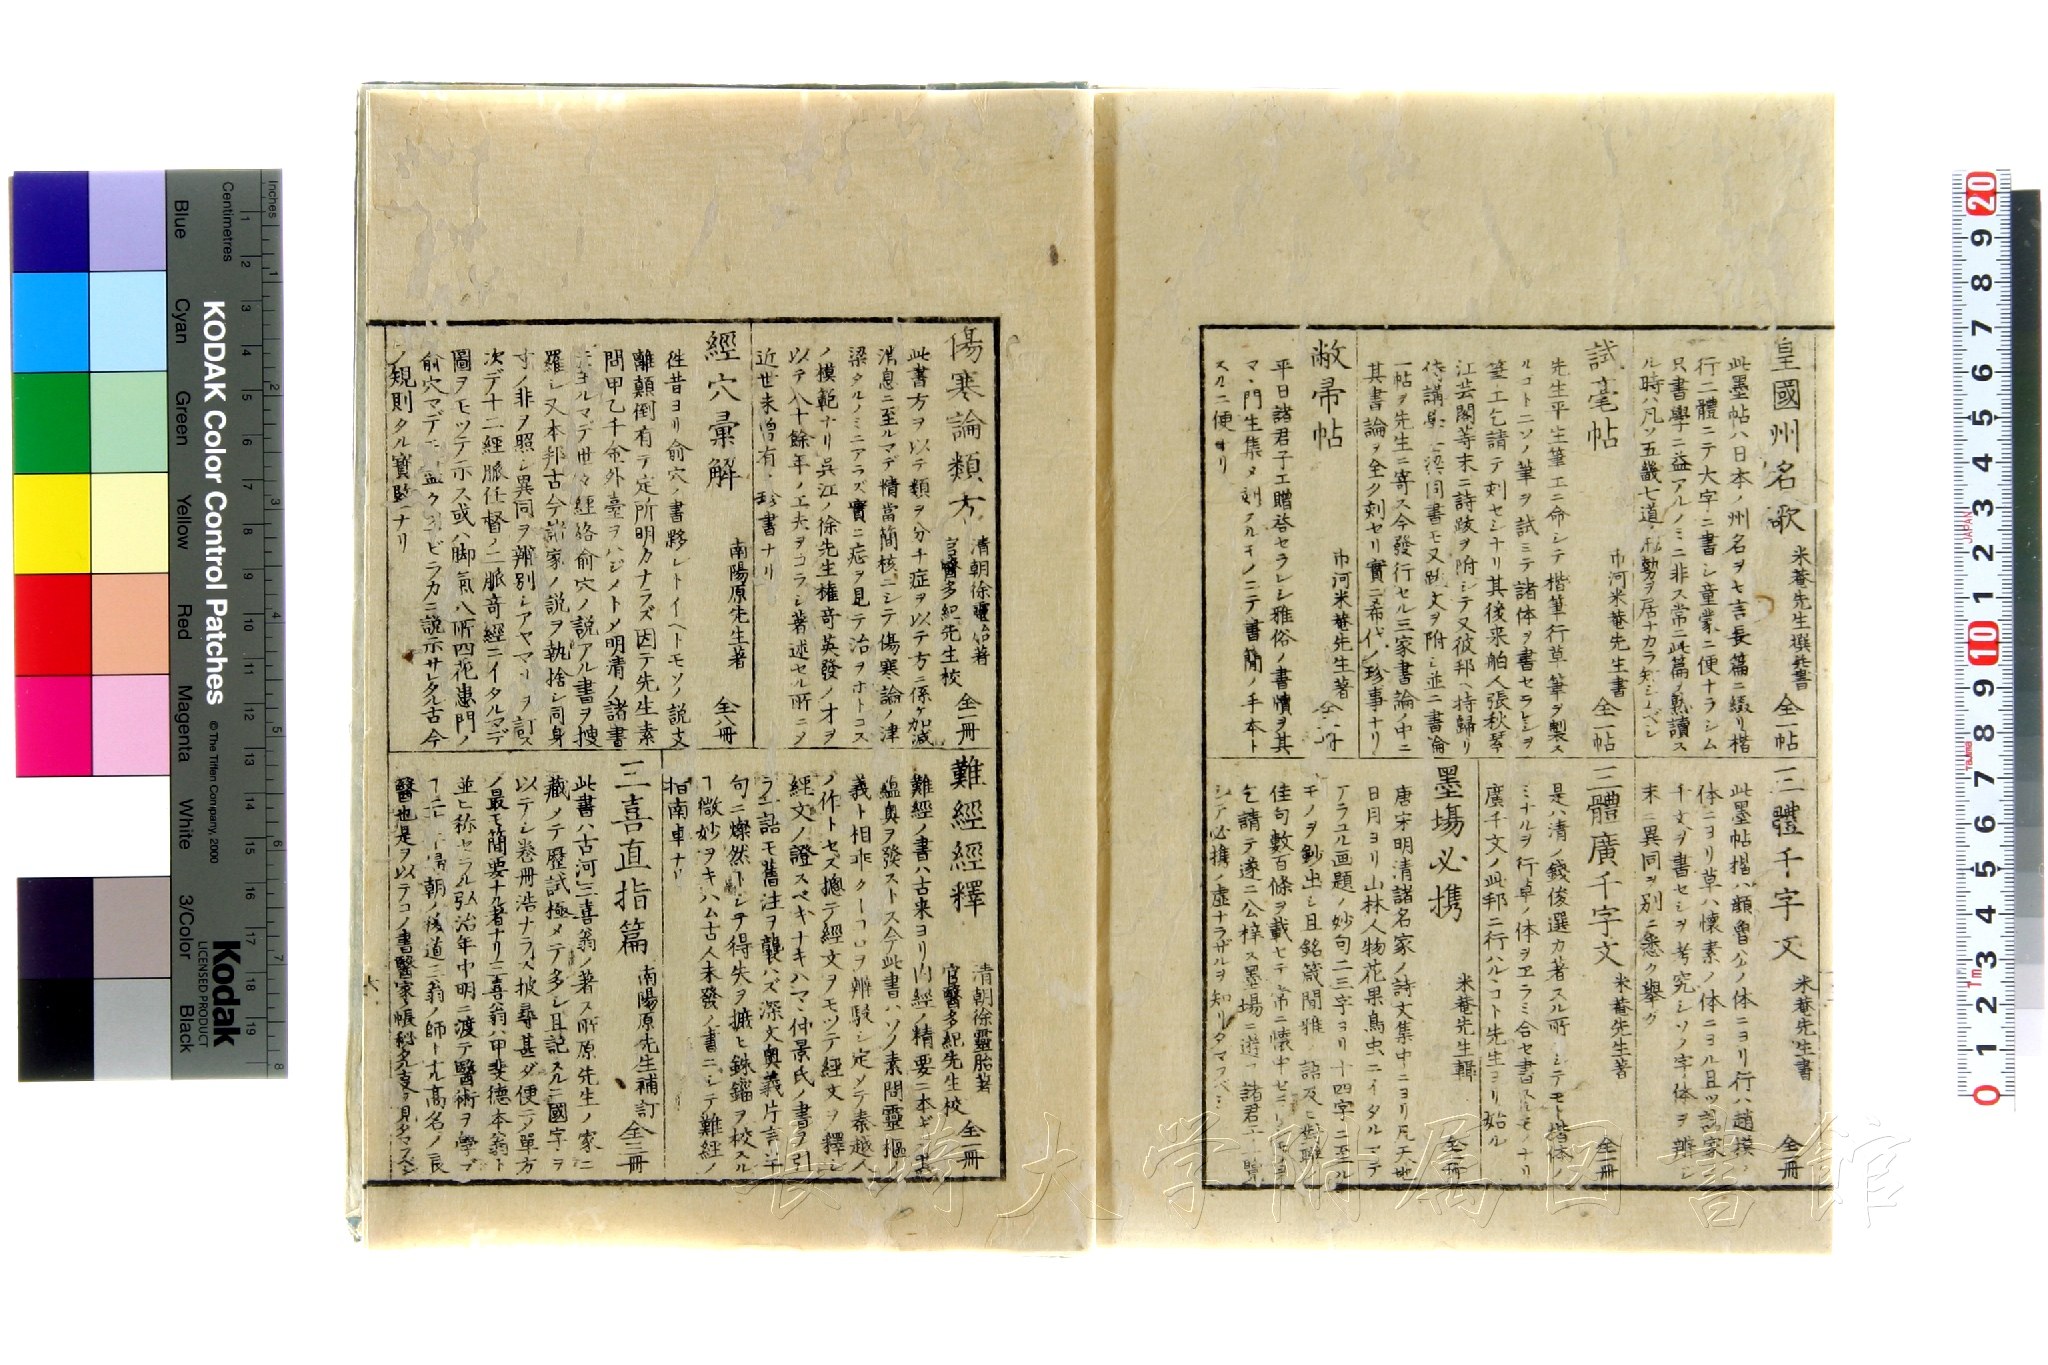 皇國州名歌 米菴先生撰并書 全一帖
此墨帖ハ日本ノ州名ヲ七言長篇ニ綴リ楷
行二體ニテ大字ニ書シ童蒙ニ便ナラシム
只書學ニ益アルノミニ非ス常ニ此篇ヲ熟讀ス
ル時ハ凡ソ五畿七道ノ形勢ヲ居ナカラ知シムベシ
試毫帖 市河米菴先生書 全一帖
先生平生筆工ニ命シテ楷筆行草筆ヲ製ス
ルコトニソノ筆ヲ試ミテ諸体ヲ書セラレシヲ
筆工乞請テ刻セシナリ其後来舶人張秋琴
江芸閣等末ニ詩跋ヲ附シテ又彼邦ヘ持歸リ
侍講學士梁同書モ又跋文ヲ附シ並ニ書論
一帖ヲ先生ニ寄ス今發行セル三家書論ノ中ニ
其書論ヲ全ク刻セリ實ニ希代ノ珍事ナリ
敝帚帖 市河米菴先生著
平日諸君子エ贈答セラレシ雅俗ノ書牘ヲ其
マヽ門生集メ刻タルモノニテ書簡ノ手本ト
スルニ便ヨリ
三體千字文 米菴先生書 全一冊
此墨帖楷ハ顔魯公ノ体ニヨリ行ハ趙模ノ
体ニヨリ草ハ懷素ノ体ニヨル且ツ諸家
千文ヲ書セシヲ考究シソノ字体ヲ辨シ
末ニ異同ヲ別ニ悉ク擧グ
三體廣千字文 米菴先生著 全一冊
是ハ清ノ錢俊選カ著スル所ニシテモト楷体ノ
ミナルヲ行草ノ体ヲヱラミ合セ書スルモノナリ
廣千文ノ此邦ニ行ハルヽコト先生ヨリ始ル
墨場必携 米菴先生輯 全二冊
唐宋明清諸名家ノ詩文集中ニヨリ凡天地
日月ヨリ山林人物花果鳥虫ニイタルマテ
アラユル画題ノ妙句二三字ヨリ十四字ニ至ル
モノヲ鈔出シ且銘箴間雅ノ語及ヒ對聯ノ
佳句數百條ヲ載セテ常ニ懷中セラレシモノヲ
乞請テ遂ニ公梓ス墨場ニ遊フ諸君子一覽
シテ必携ノ虚ナラザルヲ知リタマフベシ
傷寒論類方 清朝徐靈胎著 官醫多紀先生校 全一冊
此書方ヲ以テ類ヲ分チ症ヲ以テ方ニ係ケ加減
消息ニ至ルマデ精當簡核ニシテ傷寒論ノ津
梁タルノミニアラズ實ニ症ヲ見テ治ヲホトコス
ノ模範ナリ呉江ノ徐先生權奇英發ノオヲ
以テ八十餘年ノ工夫ヲコラシ著述セル所ニテ
近世未曽有ノ珍書ナリ
經穴彙解 南陽原先生著 全八冊
徃昔ヨリ俞穴ノ書夥シトイヘトモソノ説支
離顛倒有テ定所明カナラズ因テ先生素
問甲乙千金外臺ヲハジメトメ明清ノ諸書
ニヨルマデ世々經絡俞穴ノ説アル書ヲ捜
羅シ又本邦古今諸家ノ説ヲ執捨シ同身
寸ノ非ヲ照シ異同ヲ辨別シアヤマリヲ訂ス
次デ十二經脈任督ノ二脈竒經ニイタルマデ
圖ヲモツテ示ス或ハ脚氣八所四花患門ノ
俞穴マデモ盡クツマビラカニ説示サレタル古今
ノ規則タル寶聀ナリ
難經經釋 清朝徐靈胎著 官醫多紀先生校 全二冊
難經ノ書ハ古来ヨリ内經ノ精要ニ本ギソノ
蘊奥ヲ發ストス今此書ハソノ素問靈樞ノ
義ト相乖クトコロヲ辨駁シ定メテ秦越人
ノ作トセズ摠テ經文ヲモツテ經文ヲ釋シ
經文ノ證スベキナキハマヽ仲景氏ノ書ヲ引
テ一語モ舊注ヲ襲ハズ深文奥義片言半
句ニ燦然トシテ得失ヲ摭ヒ銖錙ヲ校スル
ヿ微妙ヲキハム古人未發ノ書ニシテ難經ノ
指南車ナリ
三喜直指篇 南陽原先生補訂 全三冊
此書ハ古河三喜翁ノ著ス所原先生ノ家ニ
藏メテ歴試極メテ多シ且記スルニ國字ヲ
以テシ卷冊浩ナラズ披尋甚ダ便ニテ單方
ノ最モ簡要ナル者ナリ三喜翁ハ甲斐德本翁ト
並ヒ称セラル弘治年中明ニ渡テ醫術ヲ學ブ
ヿ二十年歸朝ノ後道三翁ノ師トナル高名ノ良
醫也是ヲ以テコノ書醫家ノ帳秘タル支ヲ見タマフベシ
長崎大学附属図書館